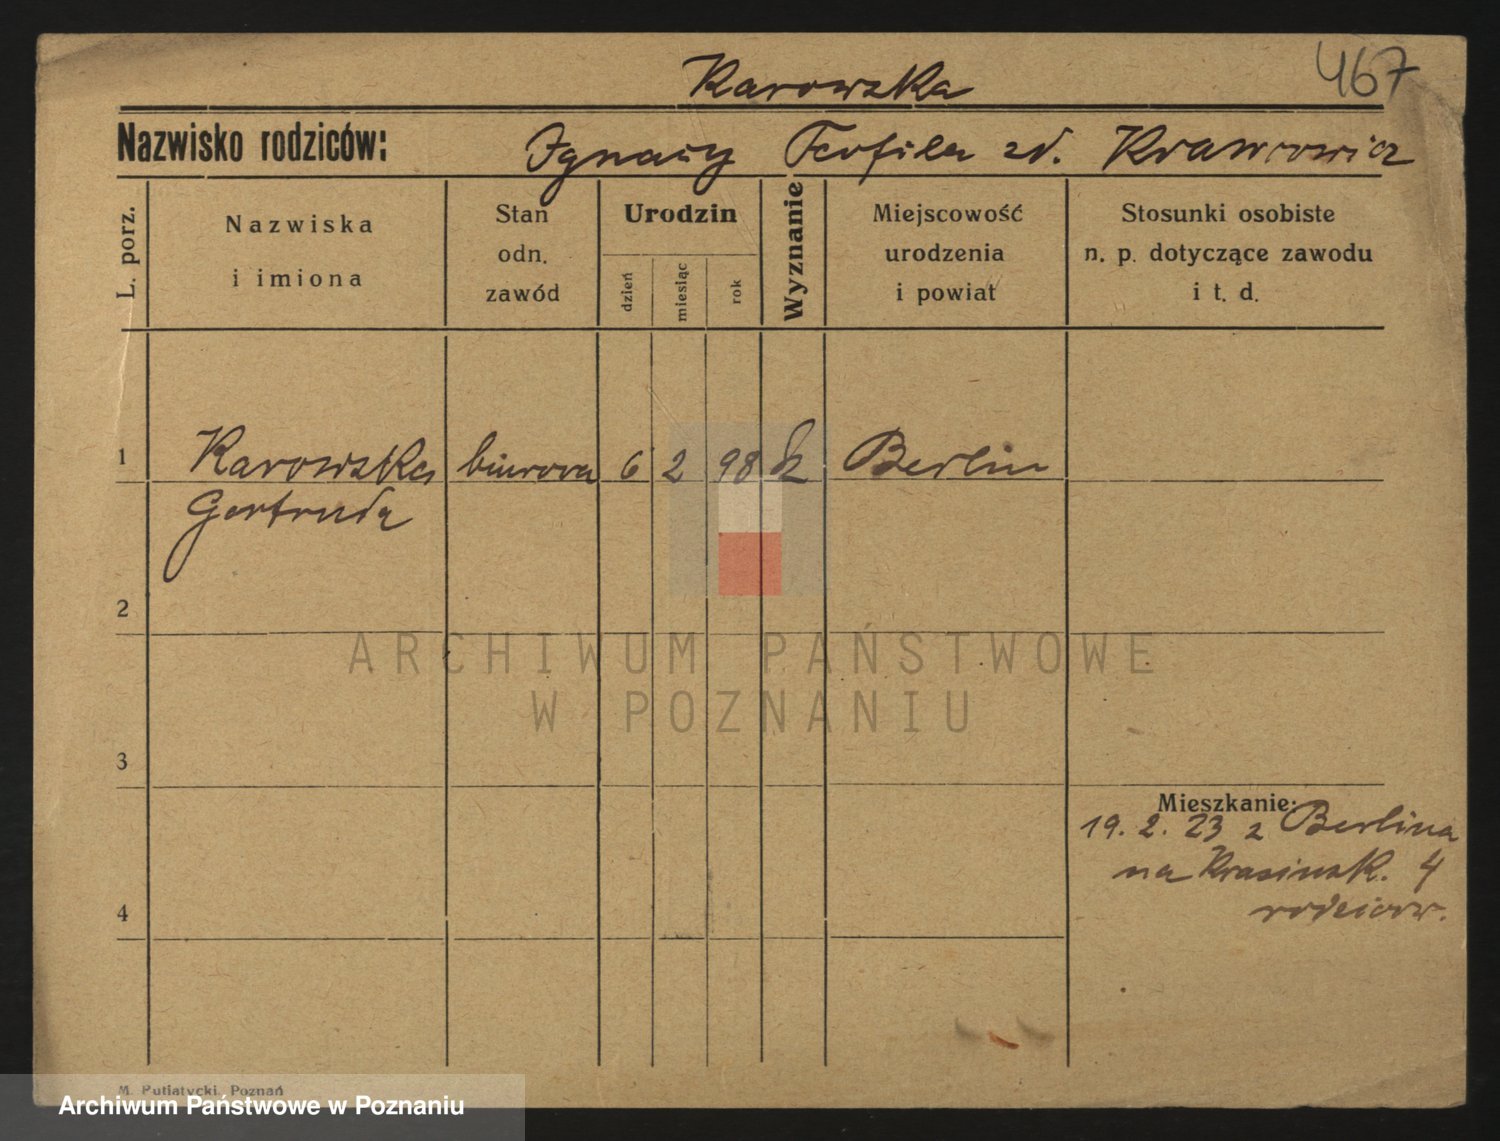 467
Karowska
Nazwisko rodziców: Ignacy Teofila zd. Krawcowicz
L. porz.
Nazwiska i imiona
Stan odn. zawód
Urodzin
dzień
miesiąc
rok
Wyznanie
Miejscowość urodzenia i powiat
Stosunki osobiste n. p. dotyczące zawodu i t. d.
1 Karowska biurowa 6 2 98 k Berlin
Gertruda
2
ARCHIWUM PAŃSTWOWE
W POZNANIU
3
Mieszkanie:
19. 2. 23 z Berlina
na Krasinsk. 4
4
rodziców.
M. Putiatycki, Poznań
Archiwum Państwowe w Poznaniu